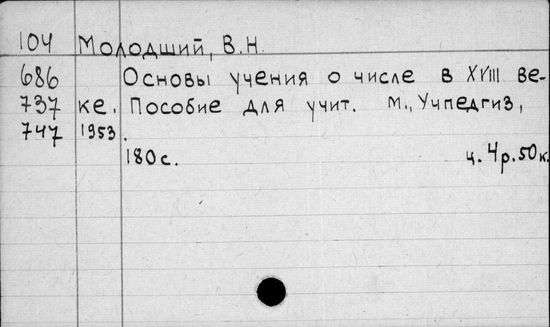 104 Молодший, В.Н.
686 Основы учения о числе в XVIII ве-
737 ке. Пособие для учит. М., Учпедгиз,
747 1953.
180с. ц. 4р.50к.